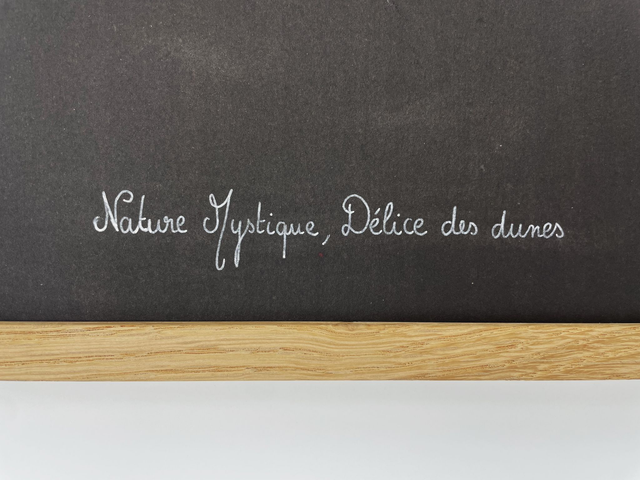 Nature Mystique, Délice des dunes